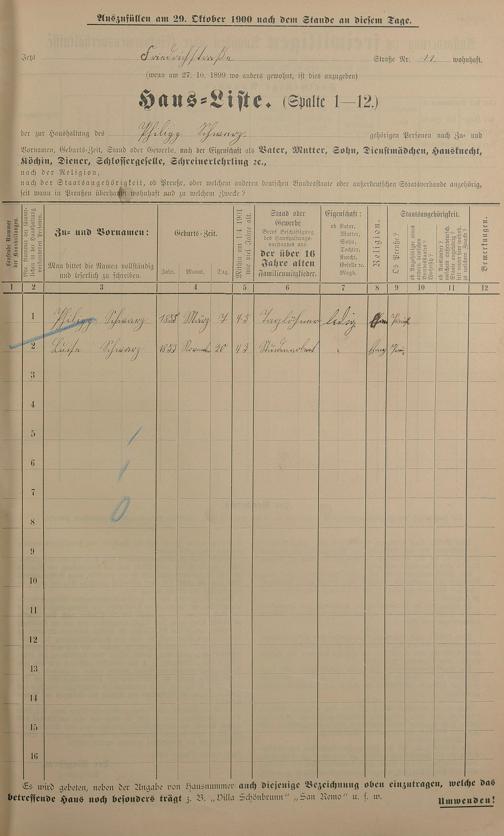 Auszufüllen am 29. Oktober 1900 nach dem Stande an diesem Tage.
Jetzt Friedrichstraße Straße Nr. 11 wohnhaft.
(wenn am 27. 10. 1899 wo anders gewohnt, ist dies anzugeben)
Haus=Liste. (Spalte 1—12.)
der zur Haushaltung des Philipp Schwarz gehörigen Personen nach Zu- und
Vornamen, Geburts-Zeit, Stand oder Gewerbe, nach der Eigenschaft als Vater, Mutter, Sohn, Dienstmädchen, Hausknecht,
Köchin, Diener, Schlossergeselle, Schreinerlehrling ꝛc.,
nach der Religion,
nach der Staatsangehörigkeit, ob Preuße, oder welchem anderen deutschen Bundesstaate oder außerdeutschen Staatsverbande angehörig,
seit wann in Preußen überhaupt und zu welchem Zwecke?
Zu- und Vornamen:
Man bittet die Namen vollständig und leserlich zu schreiben.
Geburts-Zeit.
Jahr. Monat. Tag.
Stand oder Gewerbe
der über 16 Jahre alten Familienmitglieder.
Eigenschaft:
ob Vater, Mutter, Sohn, Tochter, Knecht, Geselle oc. Magd.
Religion.
Staatsangehörigkeit.
Ob Preuße?
Bemerkungen.
1 2 3 4 5 6 7 8 9 10 11 12
1 Philipp Schwarz 1855 März 7 45 Taglöhner ledig
2 Luise Schwarz 43
3
4
5
6
7
8
9
10
11
12
13
14
15
16
Es wird gebeten, neben der Angabe von Hausnummer auch diejenige Bezeichnung oben einzutragen, welche das
betreffende Haus noch besonders trägt z. B. „Villa Schönbrunn" „San Remo" u. s. w.
Umwenden!